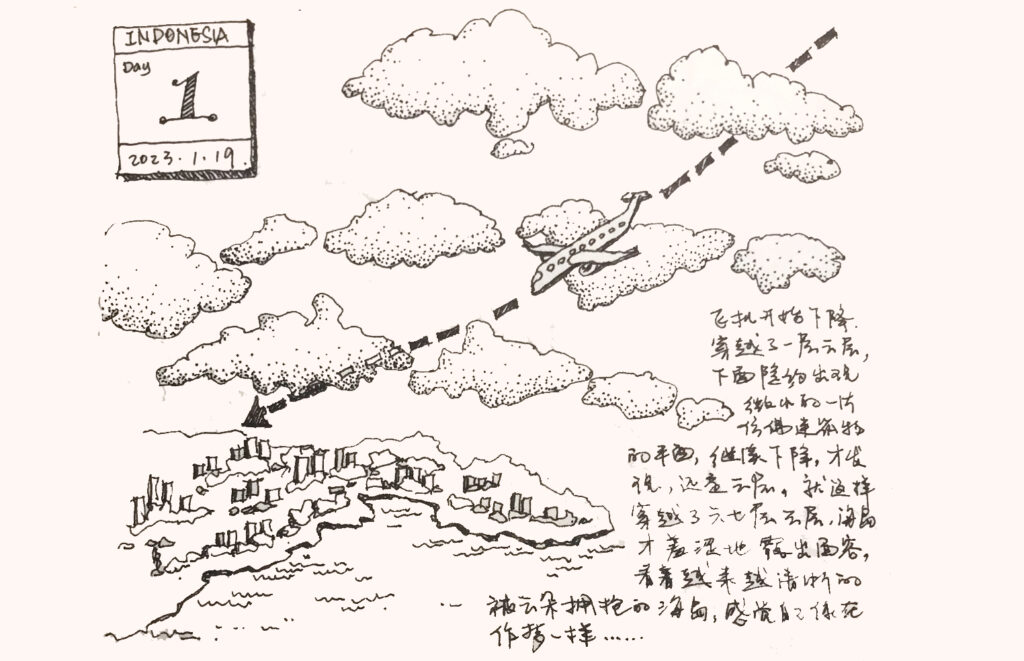 INDONESIA
Day
1
2023.1.19.
飞机开始下降.
穿越了一层云层,
下面隐约出现
微小的一片
建筑物
的平面, 继续下降, 才发
现, 还是云层。就这样
穿越了六七层云层, 海岛
才羞涩地露出面容,
看着越来越清晰的
被云朵拥抱的海岛, 感觉自己像在
作梦一样……